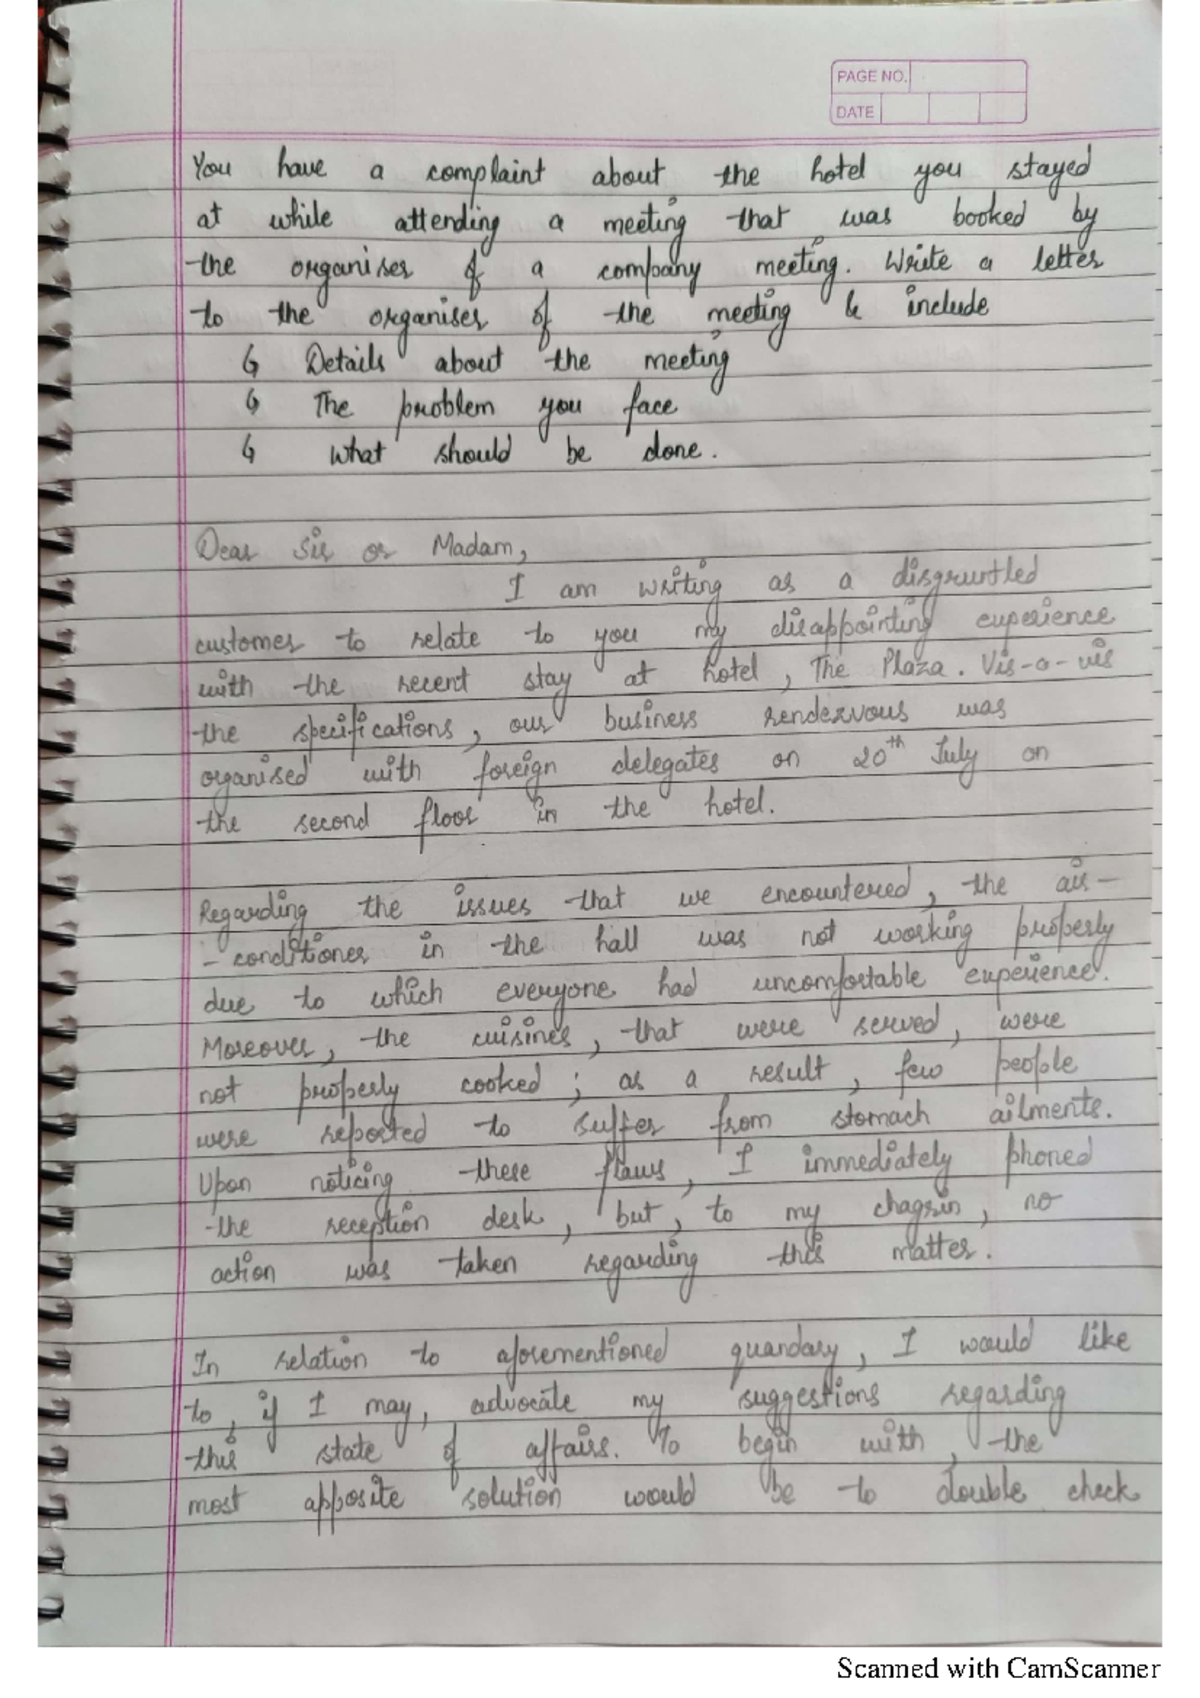 PAGE NO.
DATE
You have a complaint about the hotel you stayed
at while attending a meeting that was booked by
the organiser of a company meeting. Write a letter
to the organiser of the meeting & include
↳ Details about the meeting
↳ The problem you face
↳ what should be done.
Dear Sir or Madam,
I am writing as a disgruntled
customer to relate to you my disappointing experience
with the recent stay at hotel, The Plaza. Vis-a-vis
the specifications, our business rendezvous was
organised with foreign delegates on 20th July on
the second floor in the hotel.
Regarding the issues that we encountered, the air-
-conditioner in the hall was not working properly
due to which everyone had uncomfortable experience.
Moreover, the cuisines, that were served, were
not properly cooked; as a result, few people
were reported to suffer from stomach ailments.
Upon noticing these flaws, I immediately phoned
the reception desk, but, to my chagrin, no
action was taken regarding this matter.
In relation to aforementioned quandary, I would like
to, if I may, advocate my suggestions regarding
this state of affairs. To begin with, the
most apposite solution would be to double check
Scanned with CamScanner